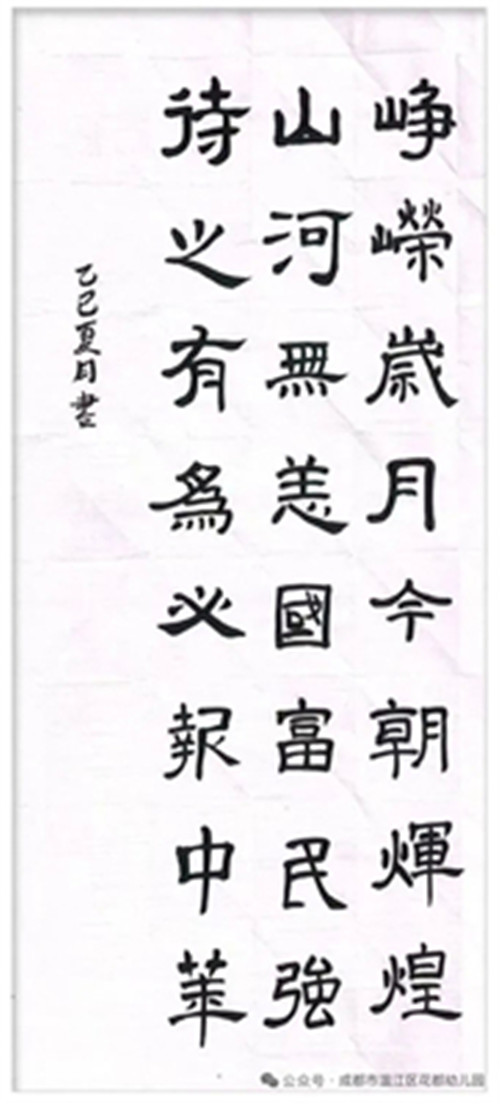 崢嶸歲月今朝輝煌
山河無恙國富民強
待之有為必報中華
乙巳夏月書
公众号·成都市温江区花都幼儿园